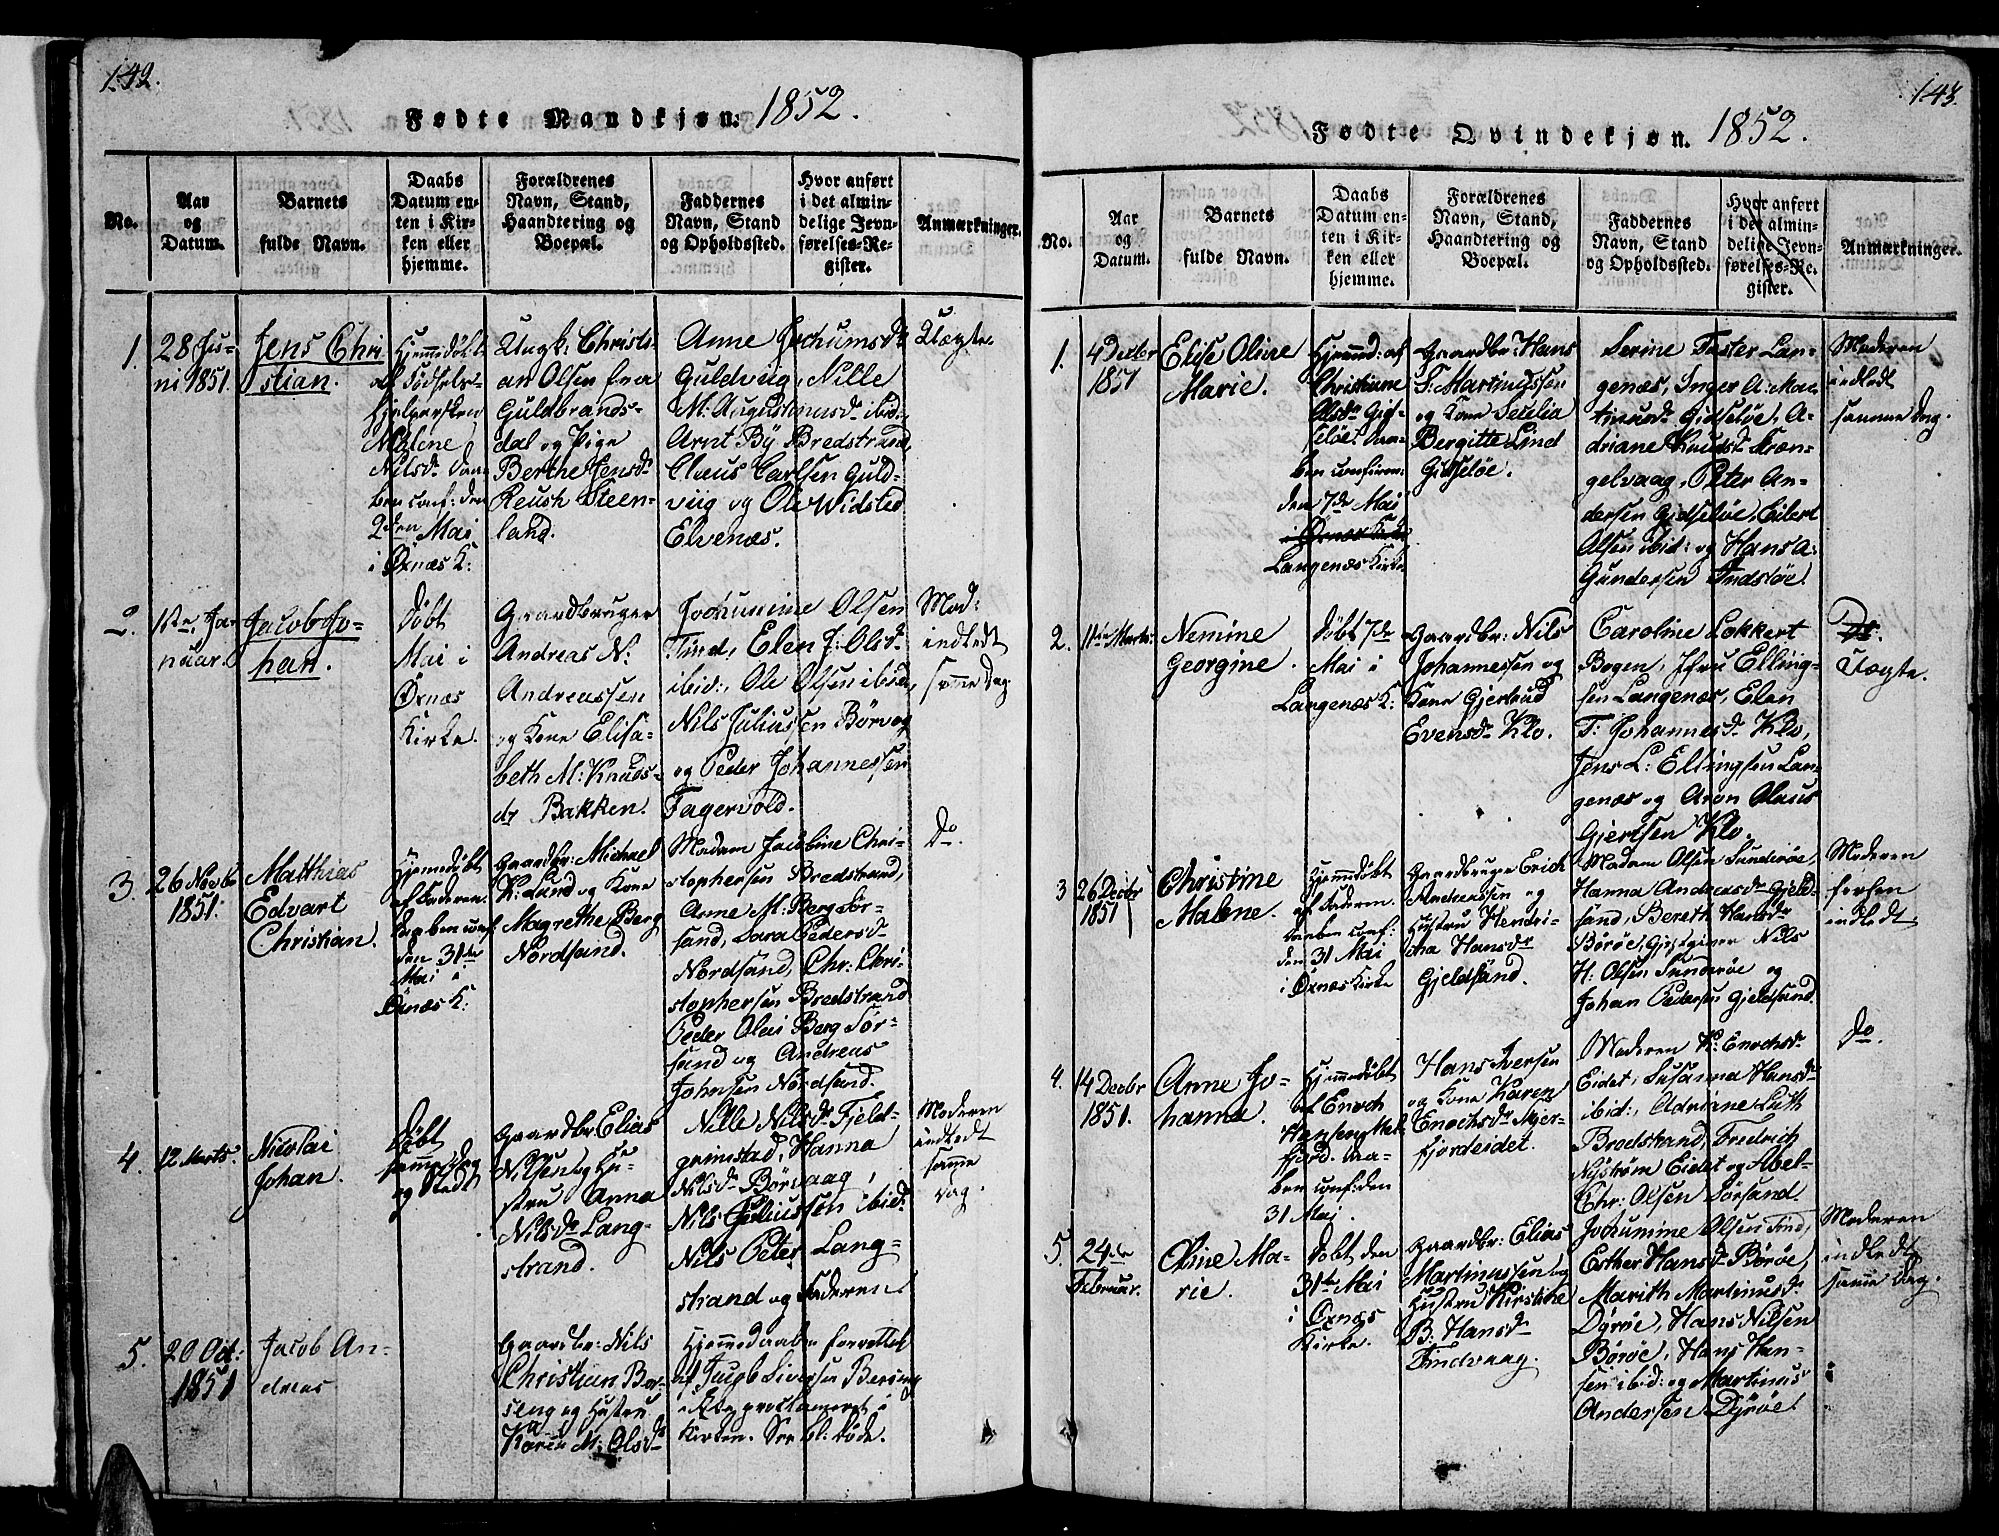 142.
Fødte Mandkjøn: 1852.
No.
Aar
og
Datum.
Barnets
fulde Navn.
Daabs
Datum en-
ten i Kir-
ken eller
hjemme.
Forældrenes
Navn, Stand,
Haandtering og
Boepæl.
Faddernes
Navn, Stand
og Opholdssted.
Hvor anført
i det almin-
delige Jevn-
førelses-Re-
gister.
Anmærkninger.
1.
28 Ju-
ni 1851.
Jens Chri
stian.
Hjemmedøbt
af Fødselss-
hjelpersken
Malene
Nilsdr. Daa-
ben conf: den
2den Mai
i Øxnæs K:
Ungk: Christi-
an Olsen fra
Guldbrands-
dal og Pige
Berthe Jensdr.
Reush Steen-
land.
Anne Jochumsdr.
Guldviig, Nille
M: Augustinusdr. ibid:
Arnt By Bredstrand,
Claus Carlsen Guld-
viig og Ole Widsted
Elvenæs.
Uægte.
2.
1ste Ja-
nuar.
Jacob Jo-
han.
Døbt
Mai i
Øxnæs
Kirke.
Gaardbruger
Andreas N:
Andreassen
og Kone Elisa-
beth M: Knuds-
dr. Bakken.
Jochumine Olsen
Tind, Elen J: Olsdr.
ibid:, Ole Olsen ibid:,
Nils Juliussen Börvog
og Peder Johannessen
Fagervold.
Mod:
indledt
samme Dag.
3.
26 Novbr
1851.
Matthias
Edvart
Christian.
Hjemmedøbt
af Faderen.
Daaben conf
den 31te
Mai i
Øxnæs K:
Gaardbr: Michael
K: Lund og Kone
Magrethe Berg
Nordsand.
Madam Jacobine Chri-
stophersen Bredstrand,
Anne M: Berg Sør-
sand, Sara Pedersdr.
Nordsand, Chr: Chri-
stophersen Bredstrand
Peder Olai Berg Sør-
sand og Andreas
Johnsen Nordsand.
Do.
4.
12 Marts.
Nicolai
Johan.
Døbt
samme Dag
og Sted
Gaardbr Elias
Nilsen og Hu-
stru Anna
Nilsdr. Lang-
strand.
Nille Nilsdr. Fjeld-
grimstad, Hanna
Nilsdr. Børvaag,
Nils Juliussen ibid:
Nils Peter Lang-
strand og Faderen.
Moderen
indledt
samme
Dag.
5.
20 Oct:
1851
Jacob An-
dreas
Gaardbr: Nils
Christian Bor-
seng og Hustru
Karen M: Olsdr.
Hjemmedaaben forrettet
af Jacob Siversen Bersing
i proclameret i
Kirken. See bl: døde.
143.
Fødte Qvindekjøn. 1852.
No.
Aar
og
Datum.
Barnets
fulde Navn.
Daabs
Datum en-
ten i Kir-
ken eller
hjemme.
Forældrenes
Navn, Stand,
Haandtering og
Boepæl.
Faddernes
Navn, Stand
og Opholdssted.
Hvor anført
i det almin-
delige Jevn-
førelses-Re-
gister.
Anmærkninger.
1.
4 Decbr
1851
Elise Oline
Marie.
Hjemmed: af
Christiane
Olsdr. Gid-
seløe Daa-
ben confirm:
den 7de Mai
i Øxnæs Kirke
Langenæs Kirke
Gaardbr: Hans
T: Martinussen
og Kone Secelia
Bergitte Lind
Gidseløe.
Serine Faster Lan-
genæs, Inger A: Mar-
tinusdr. Gidseløe, A-
driane Knudsdr. Kræn-
gelvaag, Peter An-
dersen Gidseløe, Eilert
Olsen ibid: og Hans A:
Gundersen Indsløe.
Moderen
indledt
samme Dag.
2.
11te Marts:
Nemine
Georgine.
Døbt 7de
Mai i
Langenæs K:
Gaardbr: Nils
Johannessen og
Kone Gjertrud
Evensdr. Klo.
Caroline Lokkert
Bogen, Jfru Elling-
sen Langenæs, Elen
T: Johannesdr. Klo,
Jens L: Ellingsen Lan-
genæs og Aron Olaus
Gjertsen Klo.
Do.
Uægte.
3
26 Decbr
1851
Christine
Malene.
Hjemmedøbt
af Faderen.
Daaben conf:
den 31 Mai
i Øxnæs Kirke
Gaardbruger Erich
Andreassen og
Hustru Hendri-
cha Hansdr
Gjeldsand.
Madam Olsen Sunderøe,
Hanna Andreasdr. Gjeld-
sand, Bereth Hansdr.
Börøe, Gjestgiver Nils
H: Olsen Sunderøe og
Johan Pedersen Gjeldsand.
Moderen
forhen
indledt
4.
14 Decbr
1851.
Anne Jo-
hanna.
Hjemmedøbt
af Enoch
Hansen Mel-
fjord. Daa-
ben conf: den
31 Mai.
Hans Iversen
og Kone Karen
Enochsdr. Mjer-
fjordeidet.
Moderen K: Enochsdr.
Eidet, Susanna Hansdr.
ibid:, Adriane Luth
Bredstrand, Fredrich
Nystrøm Eidet og Abel-
Chr: Olsen Sörsand.
Do.
5.
24de
Februar.
Oline Ma-
rie.
Døbt den
31te Mai
i Øxnæs
Kirke.
Gaardbr: Elias
Martinussen og
Hustru Kirstine
B: Hansdr.
Tindvaag.
Jochumine Olsen Tind,
Esther Hansdr. Børøe,
Marith Martinusdr.
Dyrøe, Hans Nilsen
Børøe, Hans Han-
sen ibid: og Martinus
Andersen Dyrøe.
Moderen
indledt
samme Dag.